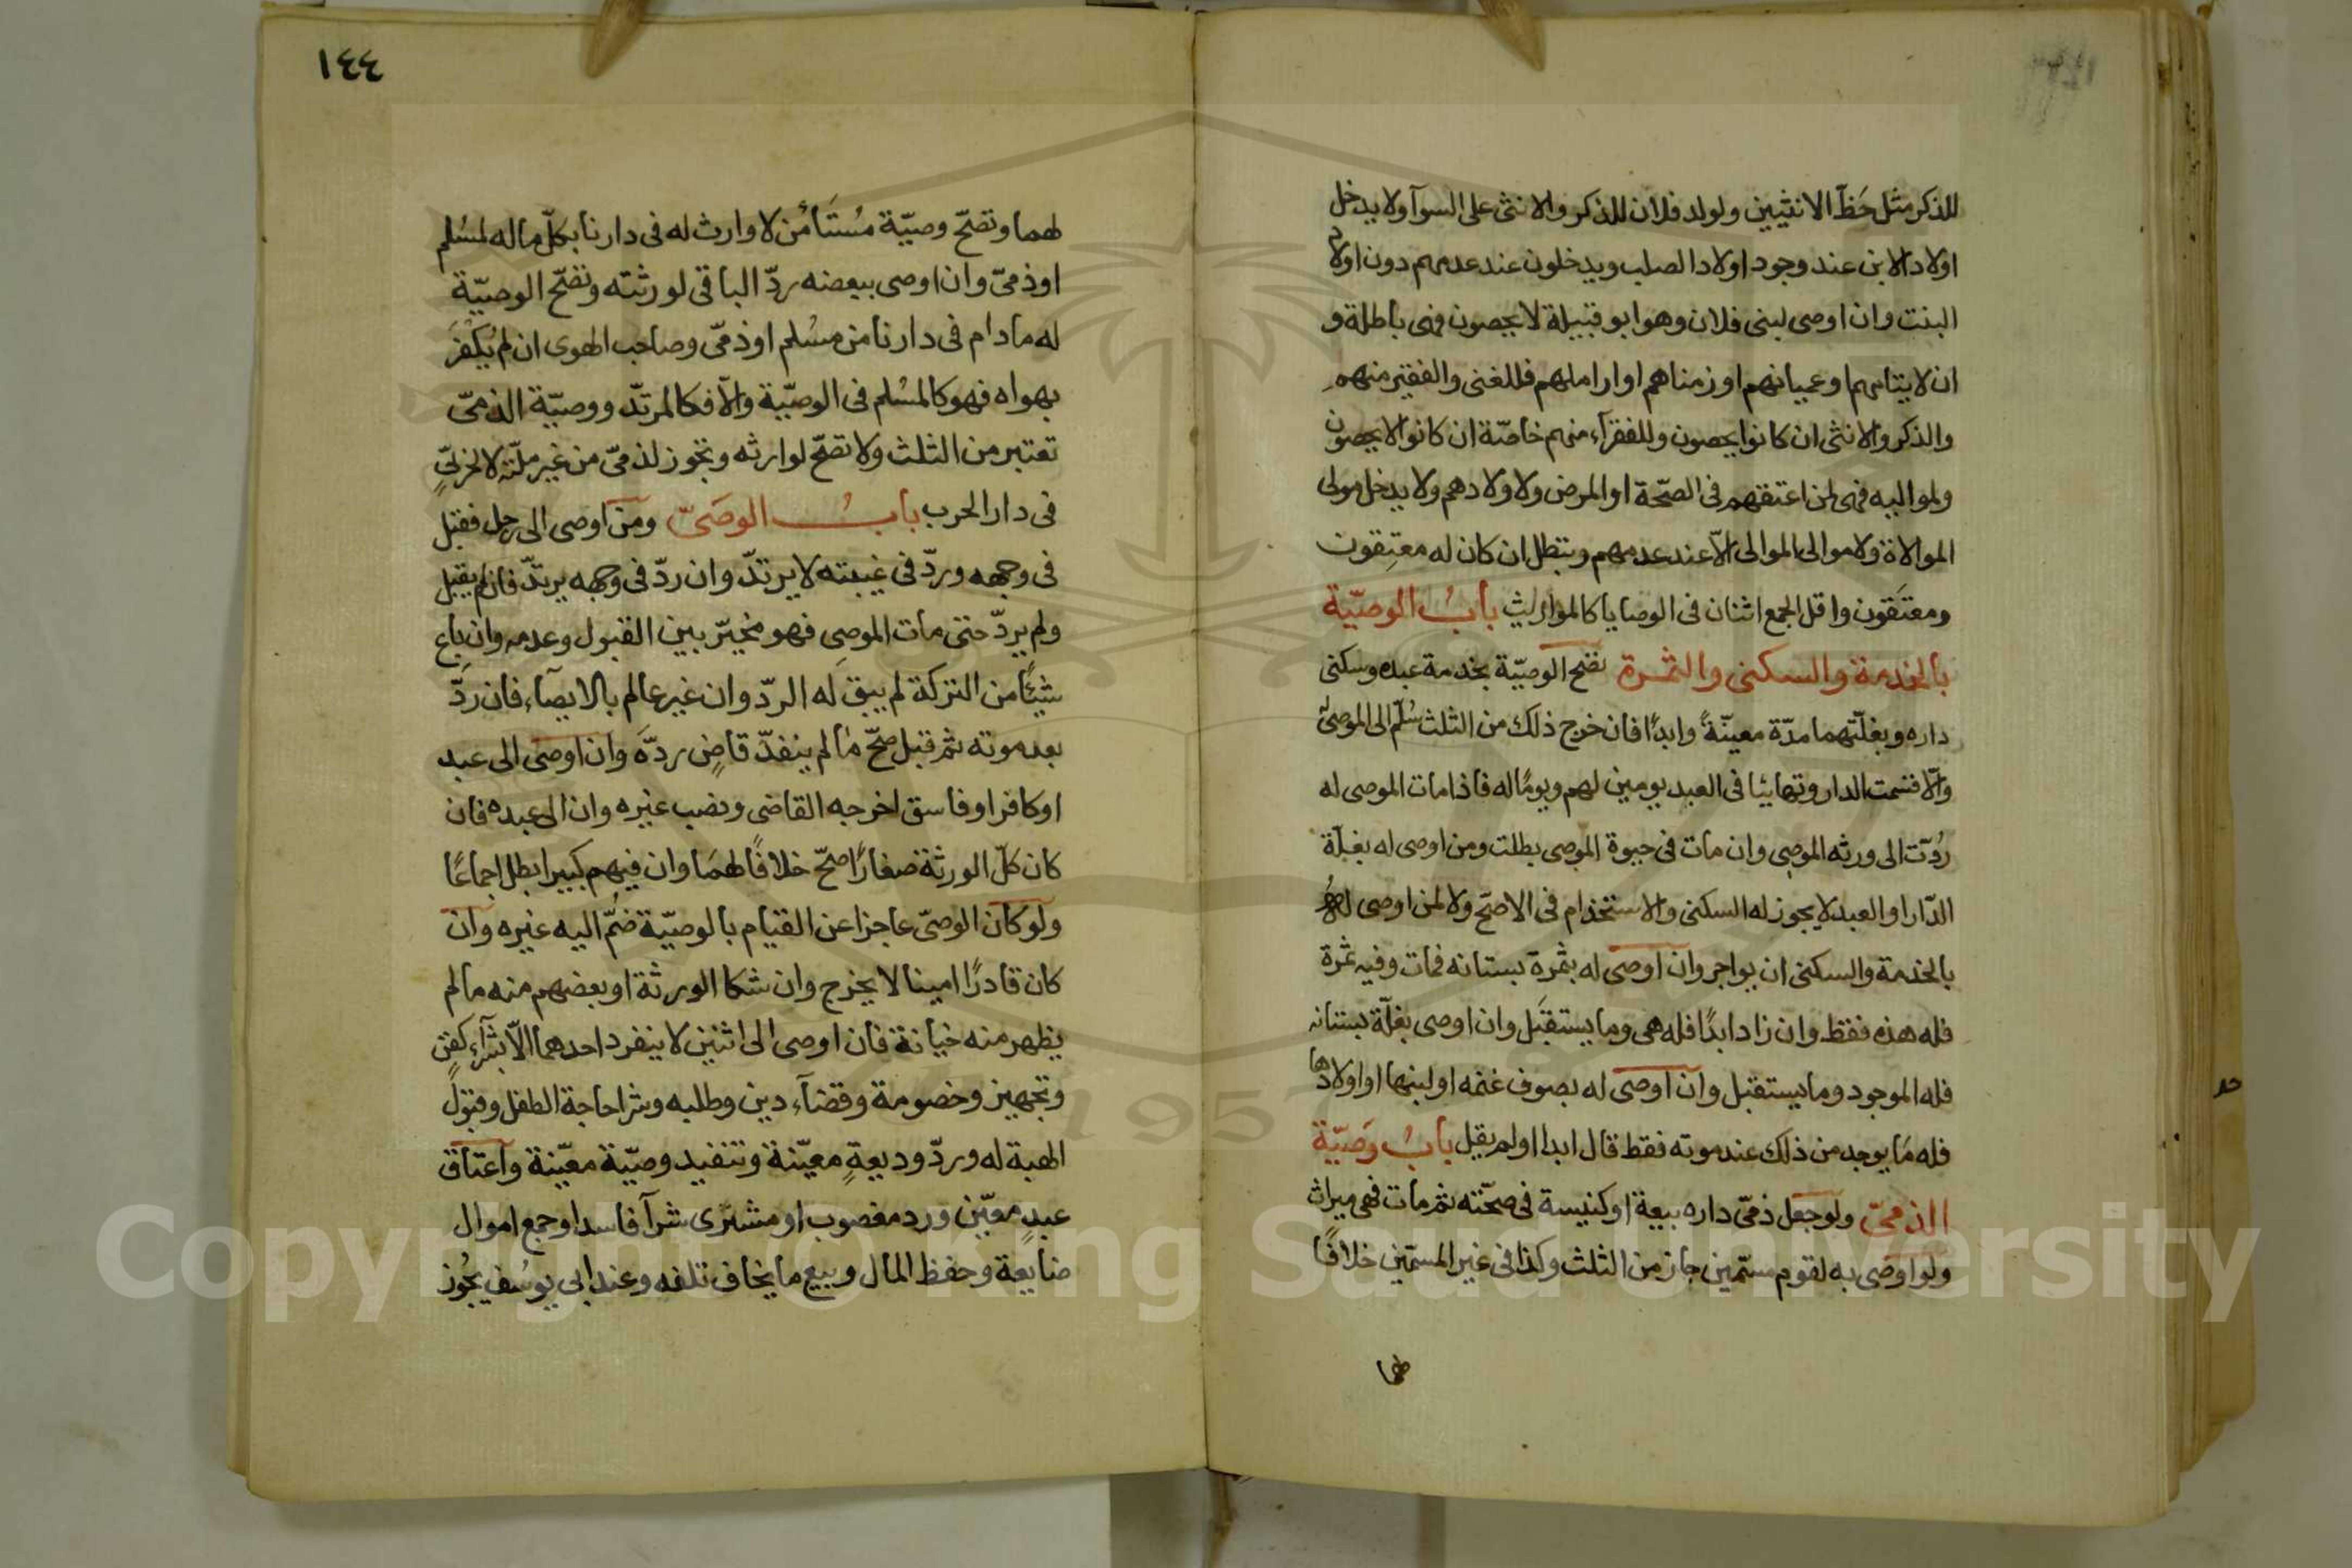 للذكر مثل حَظّ الانثيين ولولد فلان للذكر والانثى على السوآ ولا يدخل
اولاد الابن عند وجود اولاد الصلب ويدخلون عند عدمهم دون اولاد
البنت وان اوصى لبنى فلان وهو ابو قبيلة لا يحصون فهى باطلة و
ان لايتامهم او عميانهم او زمناهم او اراملهم فللغنى والفقير منهم
والذكر والانثى ان كانوا يحصون وللفقرآء منهم خاصّة ان كانوا لا يحصون
ولمواليه فهى لمن اعتقهم فى الصحّة او المرض ولاولادهم ولا يدخل مولى
الموالاة ولا موالى الموالى الّا عند عدمهم وتبطل ان كان له معتِقون
ومعتَقون واقل الجمع اثنان فى الوصايا كالمواريث بابُ الوصيّة
بالخدمة والسكنى والثمرة تصّح الوصيّة بخدمة عبده وسكنى
داره وبغلّتهما مدّة معينّةً وابدًا فان خرج ذلك من الثلث سُلّم الى الموصىٰ له
والّا قسمت الدار وتهايئا فى العبد يومين لهم ويومًا له فاذا مات الموصى له
رُدّت الى ورثه الموصِى وان مات فى حيوة الموصِى بطلت ومن اوصى له بغلّة
الدّار او العبد لا يجوز له السكنى والاستخدام فى الاصّح ولا لمن اوصى له
بالخدمة والسكنى ان يواجر وان اوصى له بثمرة بستانه فمات وفيه ثمرة
فله هذه فقط وان زاد ابدًا فله هى وما يستقبَل وان اوصى بغلّة بستانه
فله الموجود وما يستقبل وان اوصى له بصوف غنمه او لبنها او اولادها
فله مَا يوجد من ذلك عند موته فقط قال ابدا او لم يقل بابُ وصيّة
الذمىّ ولو جعل ذمّى داره بيعة او كنيسة فى صحّته ثم مات فهى ميراث
ولو اوصى به لقوم مسمّين جاز من الثلث وكذا فى غير المسمّين خلافًا
لهما
١٤٤
لهما وتصّح وصيّة مُستَأمَن لا وارث له فى دارنا بكلّ ماله لمسُلم
او ذمىّ وان اوصى ببعضه ردّ الباقى لورثته وتصّح الوصيّة
له مادام فى دارنا من مسُلم او ذمّى وصاحب الهوى ان لم يُكْفَرَ
بهواه فهو كالمسُلم فى الوصيّة والّا فكالمرتدّ ووصيّة الذمىّ
تعتبر من الثلث ولا تصّح لوارثه وتجوز لذمىّ من غير ملّته لا لحربىّ
فى دار الحرب بابُ الوصَىّ ومن اوصى الى رجل فقبل
فى وجهه وردّ فى غيبته لا يرتدّ وان ردّ فى وجهه يرتدّ فان لم يقبل
ولم يردّ حتى مات الموصِى فهو مخيّر بين القبول وعدمه وان باع
شيئًا من التركة لم يبق له الردّ وان غير عالم بالايصآء فان ردَّ
بعد موته ثم قبل صحّ ما لم ينفذّ قاضٍ ردّهَ وان اوصى الى عبد
او كافر او فاسق اخرجه القاضى ونصب غيره وان الى عبده فان
كان كلّ الورثة صغارًا صحّ خلافًا لهمَا وان فيهم كبيرا بطل اجماعًا
ولو كان الوصىّ عاجزا عن القيام بالوصيّة ضُمّ اليه غيره وان
كان قادرًا امينا لا يخرج وان شكا الورثة او بعضهم منه مالم
يظهر منه خيانة فان اوصى الى اثنين لا ينفرد احدهما الّا بشرآء كفنٍ
وتجهيز وخصومة وقضآء دين وطلبه وشرا حاجة الطفل وقبول
الهبة له وردّ وديعةٍ معيّنة وتنفيد وصيّة معيّنة واعتاق
عبدٍ معيّن ورد مغصوب او مشترى شرآ فاسدا وجمع اموال
ضايعة وحفظ المال وبيع ما يخاف تلفه وعند ابى يوسُف يجُوز
Copyright © King Saud University
1957